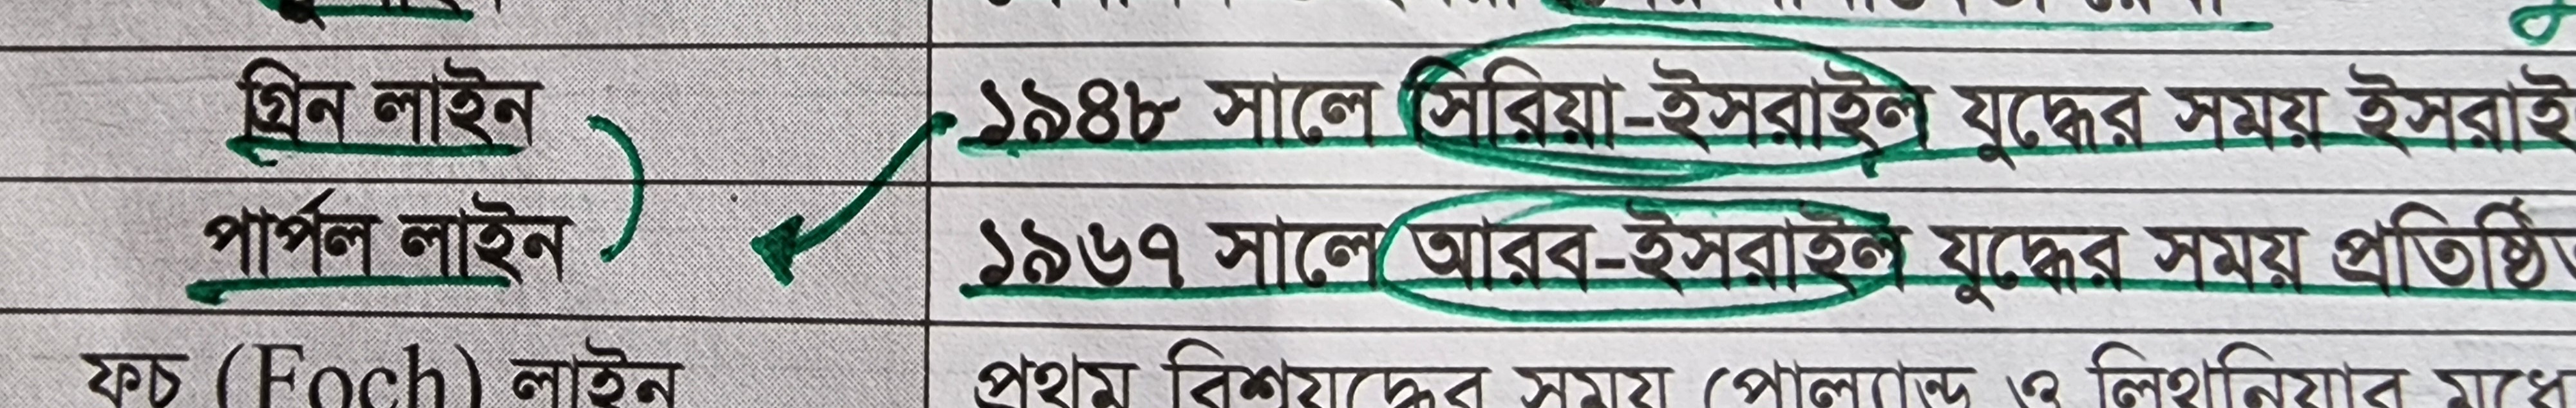 গ্রিন লাইন ১৯৪৮ সালে সিরিয়া-ইসরাইল যুদ্ধের সময় ইসরাই
পার্পল লাইন ১৯৬৭ সালে আরব-ইসরাইল যুদ্ধের সময় প্রতিষ্ঠি
ফচ (Foch) লাইন প্রথম বিশ্বযুদ্ধের সময় পোল্যান্ড ও লিথুনিয়ার মধ্যে